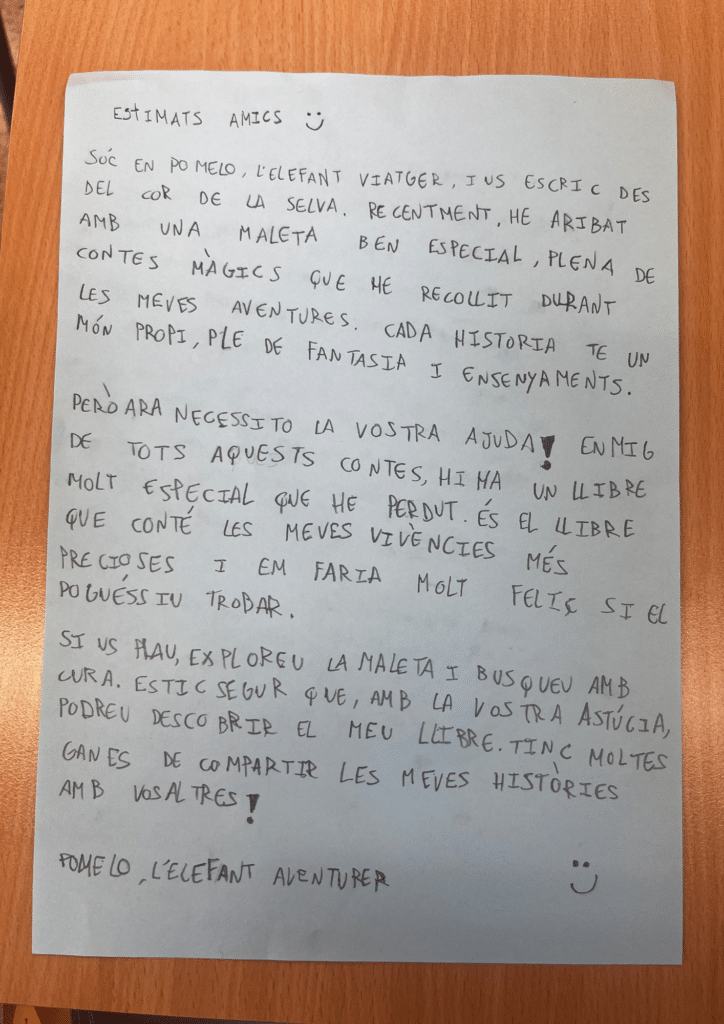 ESTIMATS AMICS
SÓC EN POMELO, L'ELEFANT VIATGER, I US ESCRIC DES
DEL COR DE LA SELVA. RECENTMENT, HE ARIBAT
AMB UNA MALETA BEN ESPECIAL, PLENA DE
CONTES MÀGICS QUE HE RECOLLIT DURANT
LES MEVES AVENTURES. CADA HISTORIA TE UN
MÓN PROPI, PLE DE FANTASIA I ENSENYAMENTS.
PERÒ ARA NECESSITO LA VOSTRA AJUDA! ENMIG
DE TOTS AQUESTS CONTES, HI HA UN LLIBRE
MOLT ESPECIAL QUE HE PERDUT. ÉS EL LLIBRE
QUE CONTÉ LES MEVES VIVÈNCIES MÉS
PRECIOSES I EM FARIA MOLT FELIÇ SI EL
POGUÉSSIU TROBAR.
SI US PLAU, EXPLOREU LA MALETA I BUSQUEU AMB
CURA. ESTIC SEGUR QUE, AMB LA VOSTRA ASTÚCIA,
PODREU DESCOBRIR EL MEU LLIBRE. TINC MOLTES
GANES DE COMPARTIR LES MEVES HISTÒRIES
AMB VOSALTRES!
POMELO, L'ELEFANT AVENTURER